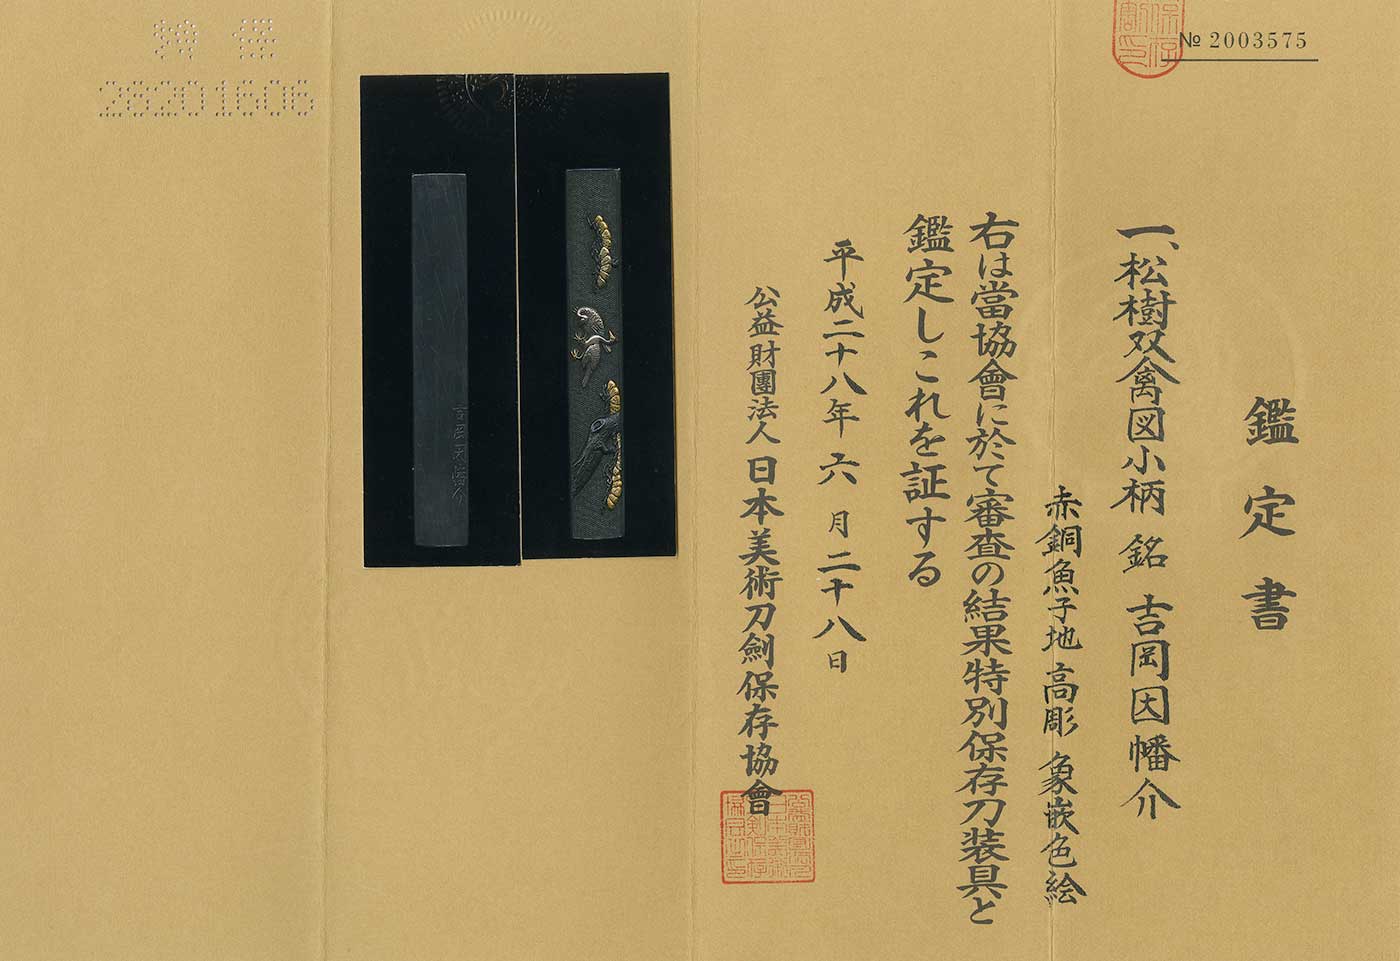 № 2003575
鑑定書
一、松樹双禽図小柄 銘 吉岡因幡介
赤銅魚子地 高彫 象嵌色絵
右は當協會に於て審査の結果特別保存刀装具と
鑑定しこれを証する
平成二十八年六月二十八日
公益財團法人日本美術刀劍保存協會
吉岡因幡介
28201606